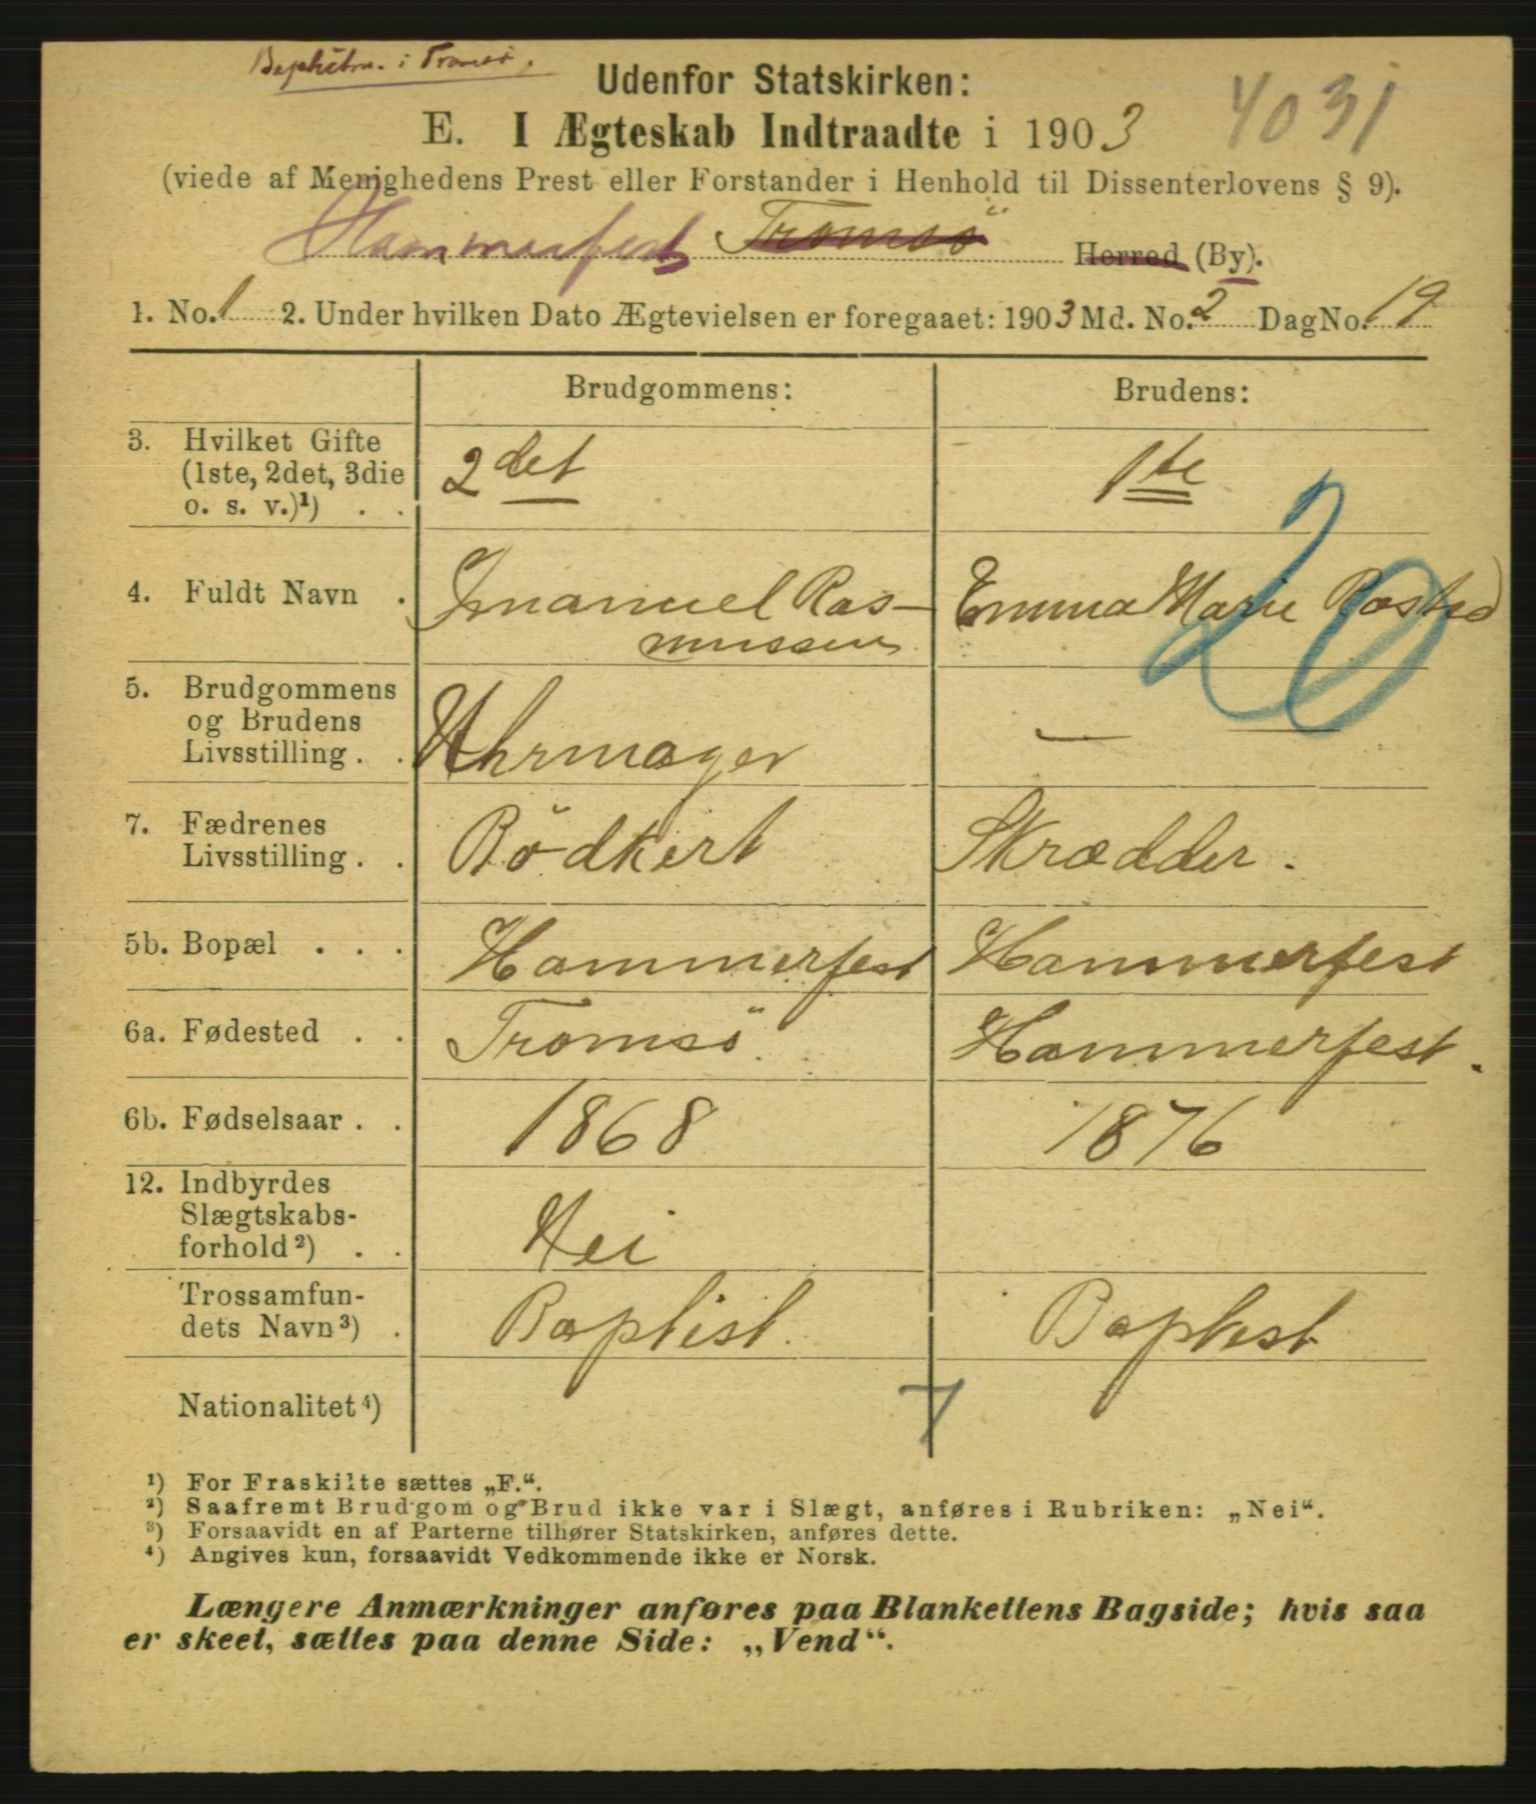 Baptistm. i Tromsö.
Udenfor Statskirken:
4031
E. I Ægteskab Indtraadte i 1903
(viede af Menighedens Prest eller Forstander i Henhold til Dissenterlovens § 9).
Hammerfest Tromsö Herred (By).
1. No. 1 2. Under hvilken Dato Ægtevielsen er foregaaet: 1903 Md. No. 2 Dag No. 19
Brudgommens: Brudens:
3. Hvilket Gifte
(1ste, 2det, 3die
o. s. v.)¹) . . 2det 1te
20
4. Fuldt Navn . Imanuel Ras- Emma Marie Rosted
mussen
5. Brudgommens
og Brudens
Livsstilling . . Uhrmager —
7. Fædrenes
Livsstilling . . Bödkert Skrædder.
5b. Bopæl . . . Hammerfest Hammerfest
6a. Fødested . . Tromsö Hammerfest.
6b. Fødselsaar . . 1868 1876
12. Indbyrdes
Slægtskabs-
forhold²) . . Nei
Trossamfun-
dets Navn³) . Baptist. Baptist
Nationalitet⁴) 7
¹) For Fraskilte sættes „F.“.
²) Saafremt Brudgom og Brud ikke var i Slægt, anføres i Rubriken: „Nei“.
³) Forsaavidt en af Parterne tilhører Statskirken, anføres dette.
⁴) Angives kun, forsaavidt Vedkommende ikke er Norsk.
Længere Anmærkninger anføres paa Blankettens Bagside; hvis saa
er skeet, sættes paa denne Side: „Vend“.